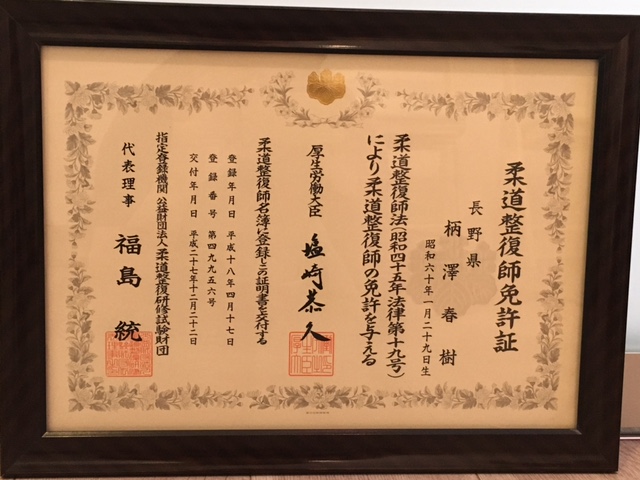 柔道整復師免許証
長野県
柄澤春樹
昭和六十年一月二十九日生
柔道整復師法(昭和四十五年法律第十九号)
により柔道整復師の免許を与える
厚生労働大臣 塩崎恭久
柔道整復師名簿に登録しこの証明書を交付する
登録年月日 平成十八年四月十七日
登録番号 第四九九五六号
交付年月日 平成二十七年十二月二十二日
指定登録機関 公益財団法人 柔道整復研修試験財団
代表理事 福島統